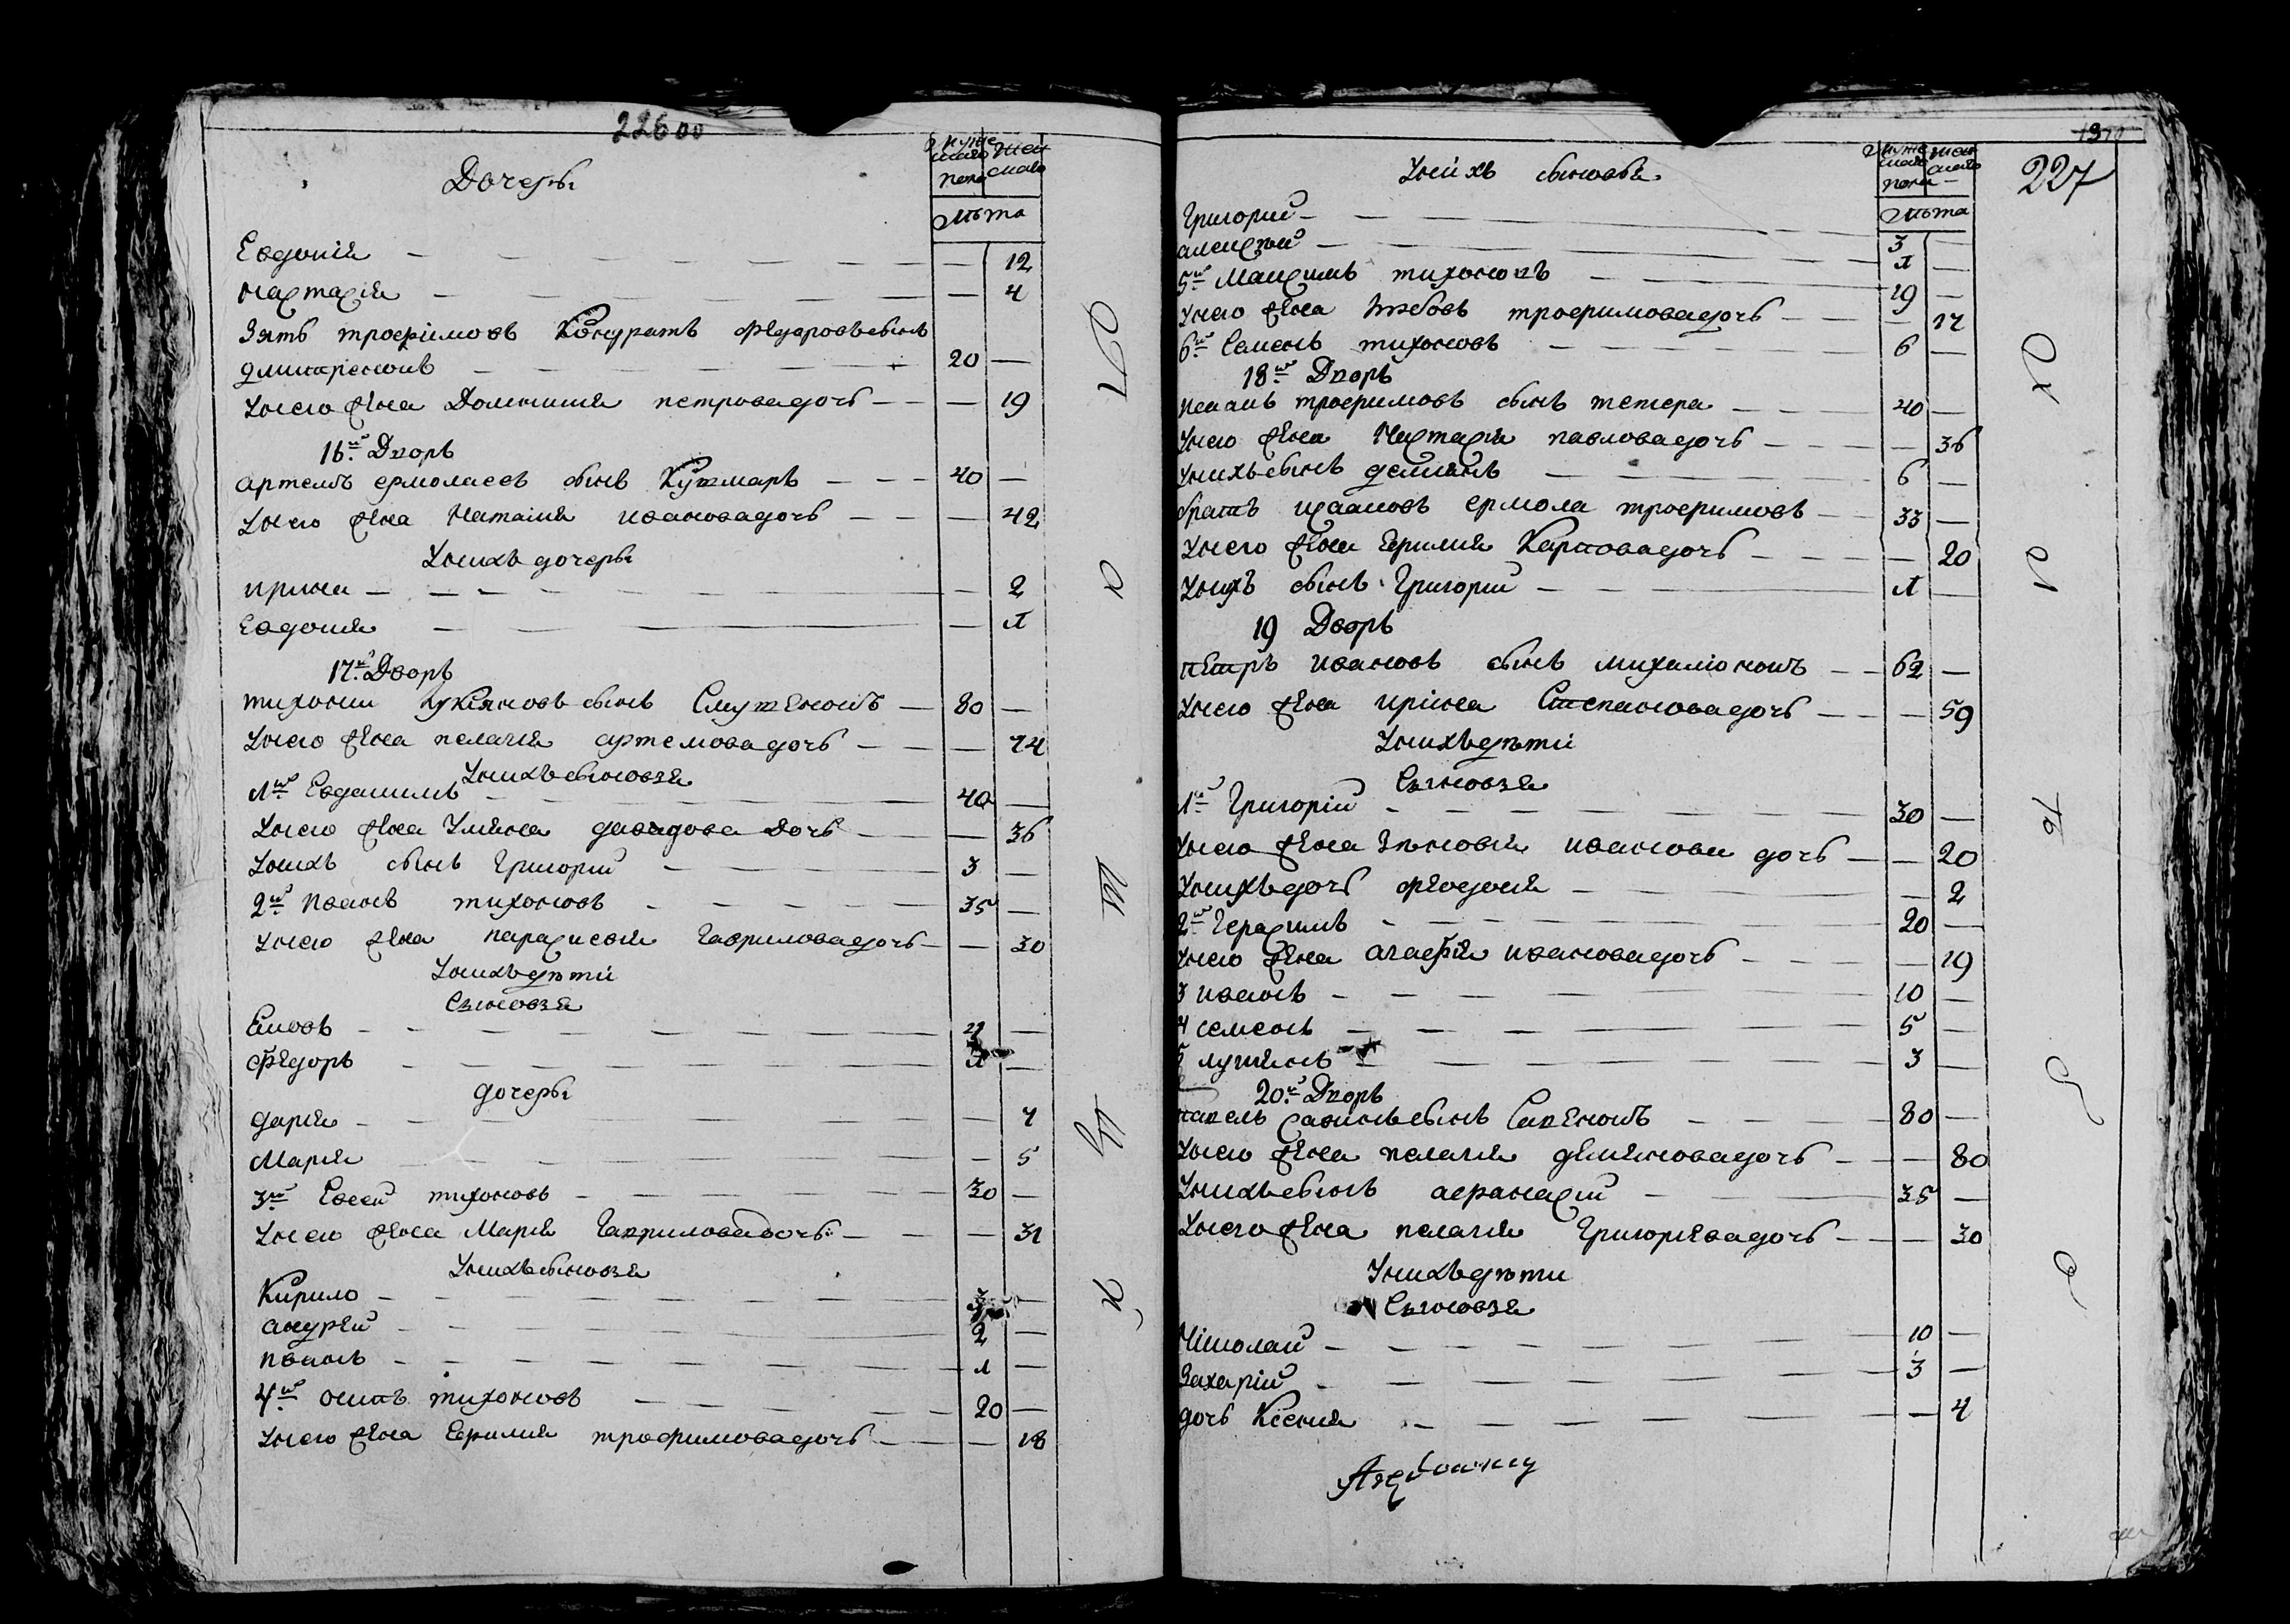 226 об
Дочеры
мужескаго пола женскаго
лѣта
Евдокія — — 12
Настасія — — 4
Зять трофімовъ Кондратъ Федоровъ сынъ
дмитренокъ — 20 —
У него жена Домникия петрова дочь — — 19
16й Дворъ
артемъ ермолаевъ сынъ Кухмаръ — 40 —
У него жена Наталия иванова дочь — — 42
У нихъ дочеры
ирина — — 2
Евдокия — — 1
17й Дворъ
тихонъ Лукіяновъ сынъ — 80 —
У него жена пелагия артемова дочь — — 74
У нихъ сыновья
1й Евдакимъ — 40 —
У него жена Улияна давидова дочь — — 36
У нихъ сынъ Григорий — 3 —
2й Иванъ тихоновъ — 35 —
У него жена парасиевия Гаврилова дочь — — 30
У нихъ дѣти
Сыновья
Яковъ
Федоръ — 1 —
дочеры
дария — — 7
Мария — — 5
3й Евсей тихоновъ — 30 —
У него жена Мария Гаврилова дочь — — 31
У нихъ сыновья
Кирило — 3 —
андрей — 2 —
Иванъ — 1 —
4й осипъ тихоновъ — 20 —
У него жена Ефимия трофимова дочь — — 18
227
У нихъ сыновья
мужескаго пола женскаго
лѣта
Григорий — 3 —
алексѣй — 1 —
5й Максимъ тихоновъ — 19 —
У него жена трофимова дочь — — 17
6й Семенъ тихоновъ — 6 —
18й Дворъ
трофимовъ сынъ тетера — 40 —
У него жена Настасия павлова дочь — — 36
У нихъ сынъ демиянъ — 6 —
братъ ермола трофимовъ — 33 —
У него жена Ефимия Карпова дочь — — 20
У нихъ сынъ Григорий — 1 —
19 Дворъ
петръ ивановъ сынъ — 62 —
У него жена ирина Степанова дочь — — 59
У нихъ дѣти
Сыновья
1й Григорій — 30 —
У него жена Зѣновия иванова дочь — — 20
У нихъ дочь феодосия — — 2
2й Герасимъ — 20 —
У него жена агафия иванова дочь — — 19
3 иванъ — 10 —
4 семенъ — 5 —
5 лукиянъ — 3 —
20й Дворъ
павелъ савинъ сынъ — 80 —
У него жена пелагия демиянова дочь — — 80
У нихъ сынъ афанасий — 35 —
У него жена пелагия Григориева дочь — — 30
У нихъ дѣти
Сыновья
Николай — 10 —
Захарій — 3 —
дочь Ксения — — 4